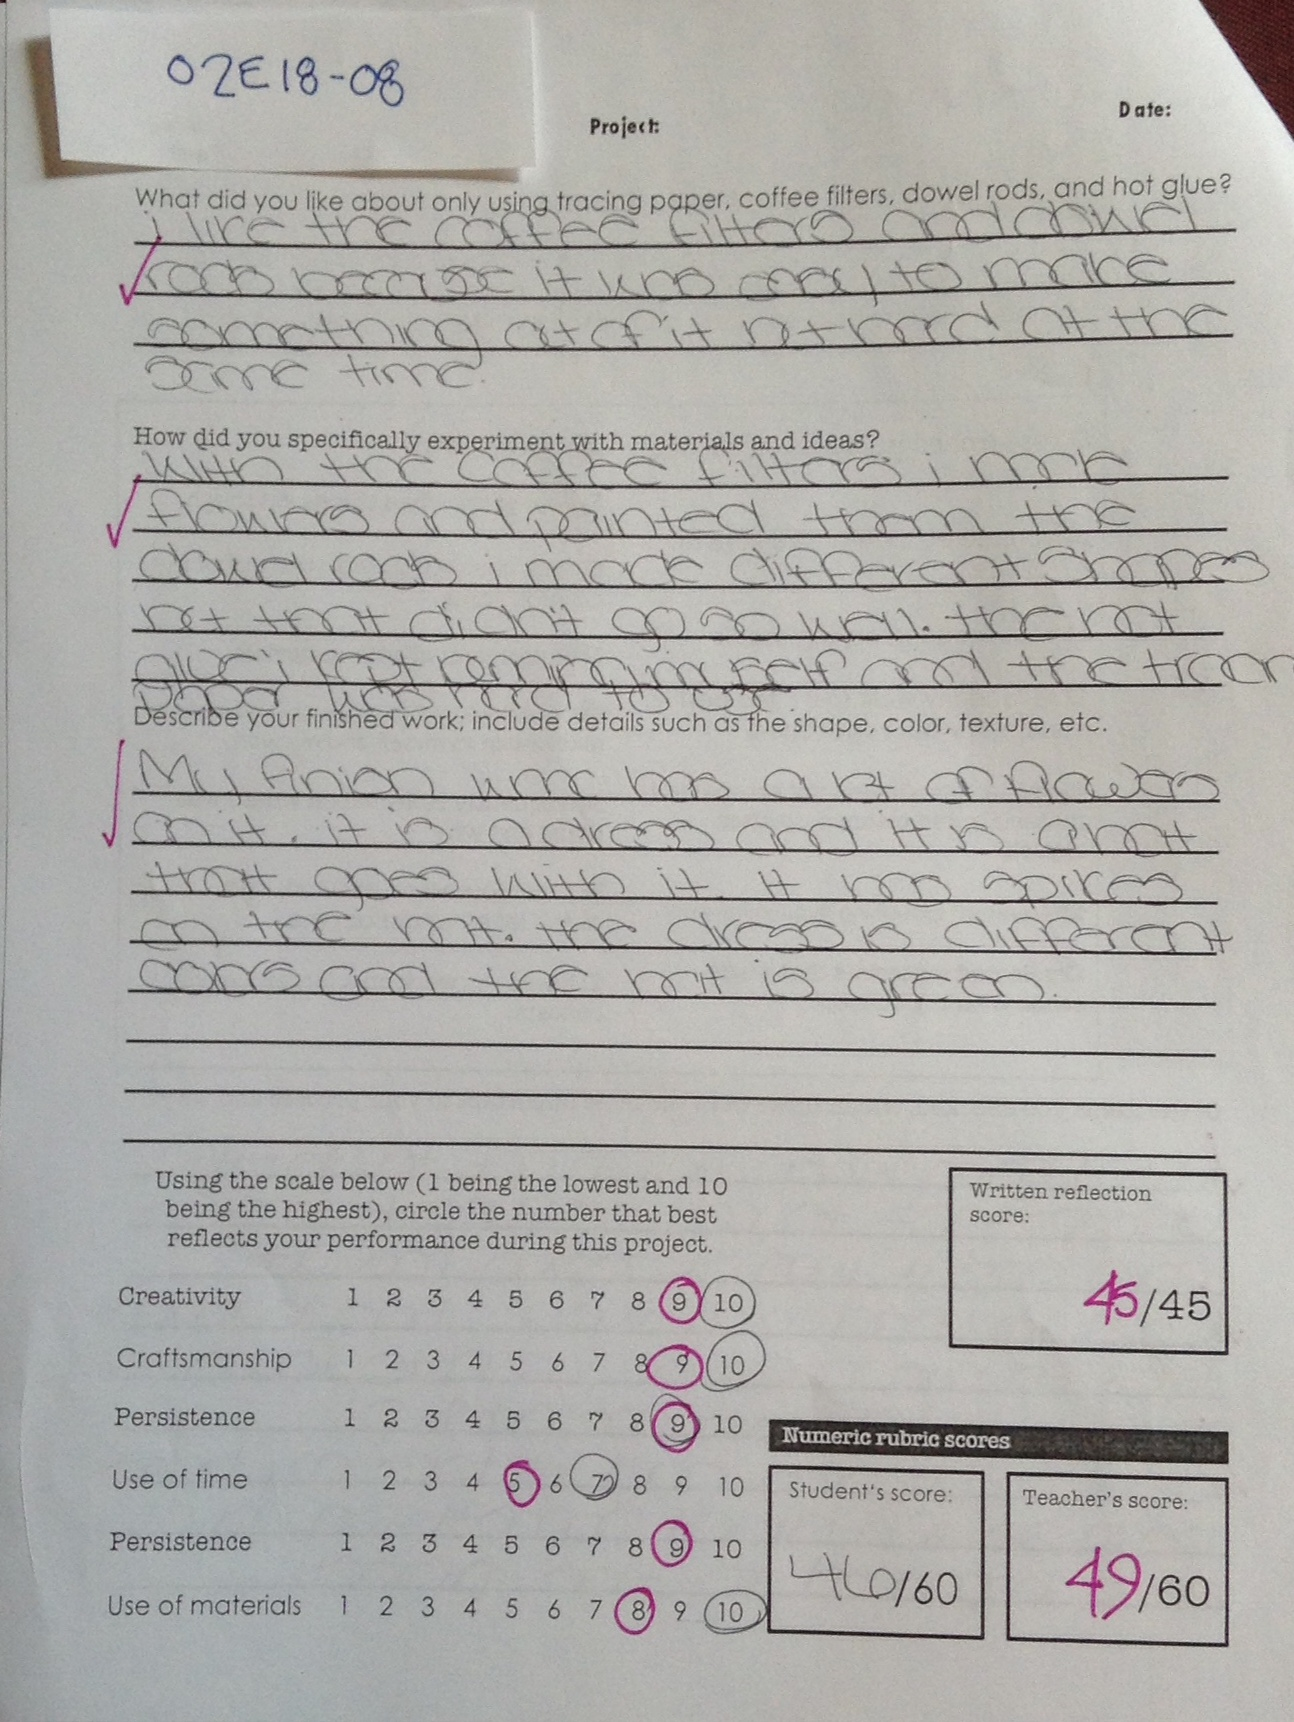 02E18-08
Project:
Date:
What did you like about only using tracing paper, coffee filters, dowel rods, and hot glue?
i like the coffee filters and dowel
rods because it was easy to make
something out of it not hard at the
same time.
How did you specifically experiment with materials and ideas?
With the coffee filters i made
flowers and painted them the
dowel rods i made different shapes
but that didn't go so well. the hot
glue i kept myself and the tracing
paper was hard to use
Describe your finished work; include details such as the shape, color, texture, etc.
My work has a lot of flowers
on it. it is a dress and it is a hat
that goes with it. it has spikes
on the hat. the dress is different
colors and the hat is green.
Using the scale below (1 being the lowest and 10
being the highest), circle the number that best
reflects your performance during this project.
Written reflection
score:
45/45
Creativity 1 2 3 4 5 6 7 8 9 10
Craftsmanship 1 2 3 4 5 6 7 8 9 10
Persistence 1 2 3 4 5 6 7 8 9 10
Use of time 1 2 3 4 5 6 7 8 9 10
Persistence 1 2 3 4 5 6 7 8 9 10
Use of materials 1 2 3 4 5 6 7 8 9 10
Numeric rubric scores
Student's score:
46/60
Teacher's score:
49/60